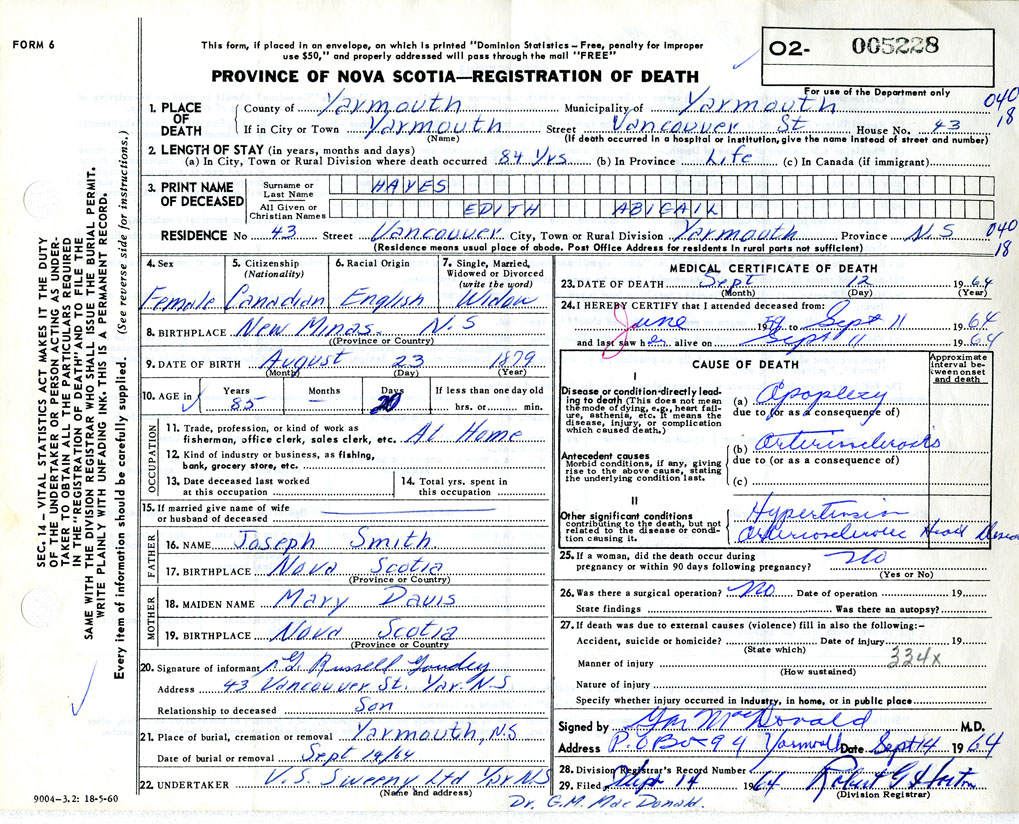 FORM 6
This form, if placed in an envelope, on which is printed "Dominion Statistics – Free, penalty for Improper
use $50," and properly addressed will pass through the mail "FREE"
O2- 005228
PROVINCE OF NOVA SCOTIA—REGISTRATION OF DEATH
For use of the Department only
040
18
1. PLACE OF DEATH County of Yarmouth Municipality of Yarmouth
If in City or Town Yarmouth Street Vancouver St House No. 43
(Name) (If death occurred in a hospital or institution, give the name instead of street and number)
2. LENGTH OF STAY (in years, months and days)
(a) In City, Town or Rural Division where death occurred 84 Yrs (b) In Province Life (c) In Canada (if immigrant)
3. PRINT NAME OF DECEASED Surname or Last Name HAYES
All Given or Christian Names EDITH ABIGAIL
RESIDENCE No 43 Street Vancouver City, Town or Rural Division Yarmouth Province N.S 040
18
(Residence means usual place of abode. Post Office Address for residents in rural parts not sufficient)
4. Sex 5. Citizenship (Nationality) 6. Racial Origin 7. Single, Married, Widowed or Divorced (write the word)
Female Canadian English Widow
8. BIRTHPLACE New Minas. N.S
(Province or Country)
9. DATE OF BIRTH August 23 1879
(Month) (Day) (Year)
10. AGE in Years Months Days If less than one day old
85 — 20 hrs. or min.
OCCUPATION
11. Trade, profession, or kind of work as
fisherman, office clerk, sales clerk, etc. At Home
12. Kind of industry or business, as fishing,
bank, grocery store, etc.
13. Date deceased last worked
at this occupation
14. Total yrs. spent in
this occupation
15. If married give name of wife
or husband of deceased
FATHER
16. NAME Joseph Smith
17. BIRTHPLACE Nova Scotia
(Province or Country)
MOTHER
18. MAIDEN NAME Mary Davis
19. BIRTHPLACE Nova Scotia
(Province or Country
20. Signature of informant G. Russell Goudey
Address 43 Vancouver St. Yar. N.S
Relationship to deceased Son
21. Place of burial, cremation or removal Yarmouth, N.S
Date of burial or removal Sept 19/64
22. UNDERTAKER V.S. Sweeny Ltd Yar N.S
(Name and address)
Dr. G.M. MacDonald.
9004-3.2: 18-5-60
MEDICAL CERTIFICATE OF DEATH
23. DATE OF DEATH Sept 12 1964
(Month) (Day) (Year)
24. I HEREBY CERTIFY that I attended deceased from:
June 1959 to Sept 11 1964
and last saw her alive on Sept 11 1964
CAUSE OF DEATH
Approximate interval between onset and death
I
Disease or condition directly leading to death (This does not mean the mode of dying, e.g., heart failure, asthenia, etc. It means the disease, injury, or complication which caused death.)
(a) Apoplexy
due to (or as a consequence of)
(b) Arteriosclerosis
Antecedent causes
Morbid conditions, if any, giving rise to the above cause, stating the underlying condition last.
due to (or as a consequence of)
(c)
II
Other significant conditions
contributing to the death, but not related to the disease or condition causing it.
Hypertension
Arteriosclerotic Heart Disease
25. If a woman, did the death occur during
pregnancy or within 90 days following pregnancy? No
(Yes or No)
26. Was there a surgical operation? No Date of operation 19
State findings Was there an autopsy?
27. If death was due to external causes (violence) fill in also the following:–
Accident, suicide or homicide? Date of injury 19
(State which)
334x
Manner of injury
(How sustained)
Nature of injury
Specify whether injury occurred in Industry, in home, or in public place
Signed by G M MacDonald M.D.
Address P.O Box 94 Yarmouth Date Sept 14 1964
28. Division Registrar's Record Number
29. Filed Sept 14 1964 Robert G Horton
(Division Registrar)
SEC. 14 – VITAL STATISTICS ACT MAKES IT THE DUTY
OF THE UNDERTAKER OR PERSON ACTING AS UNDER-
TAKER TO OBTAIN ALL THE PARTICULARS REQUIRED
IN THE "REGISTRATION OF DEATH" AND TO FILE THE
SAME WITH THE DIVISION REGISTRAR WHO SHALL ISSUE THE BURIAL PERMIT.
WRITE PLAINLY WITH UNFADING INK. THIS IS A PERMANENT RECORD.
Every item of information should be carefully supplied. (See reverse side for instructions.)